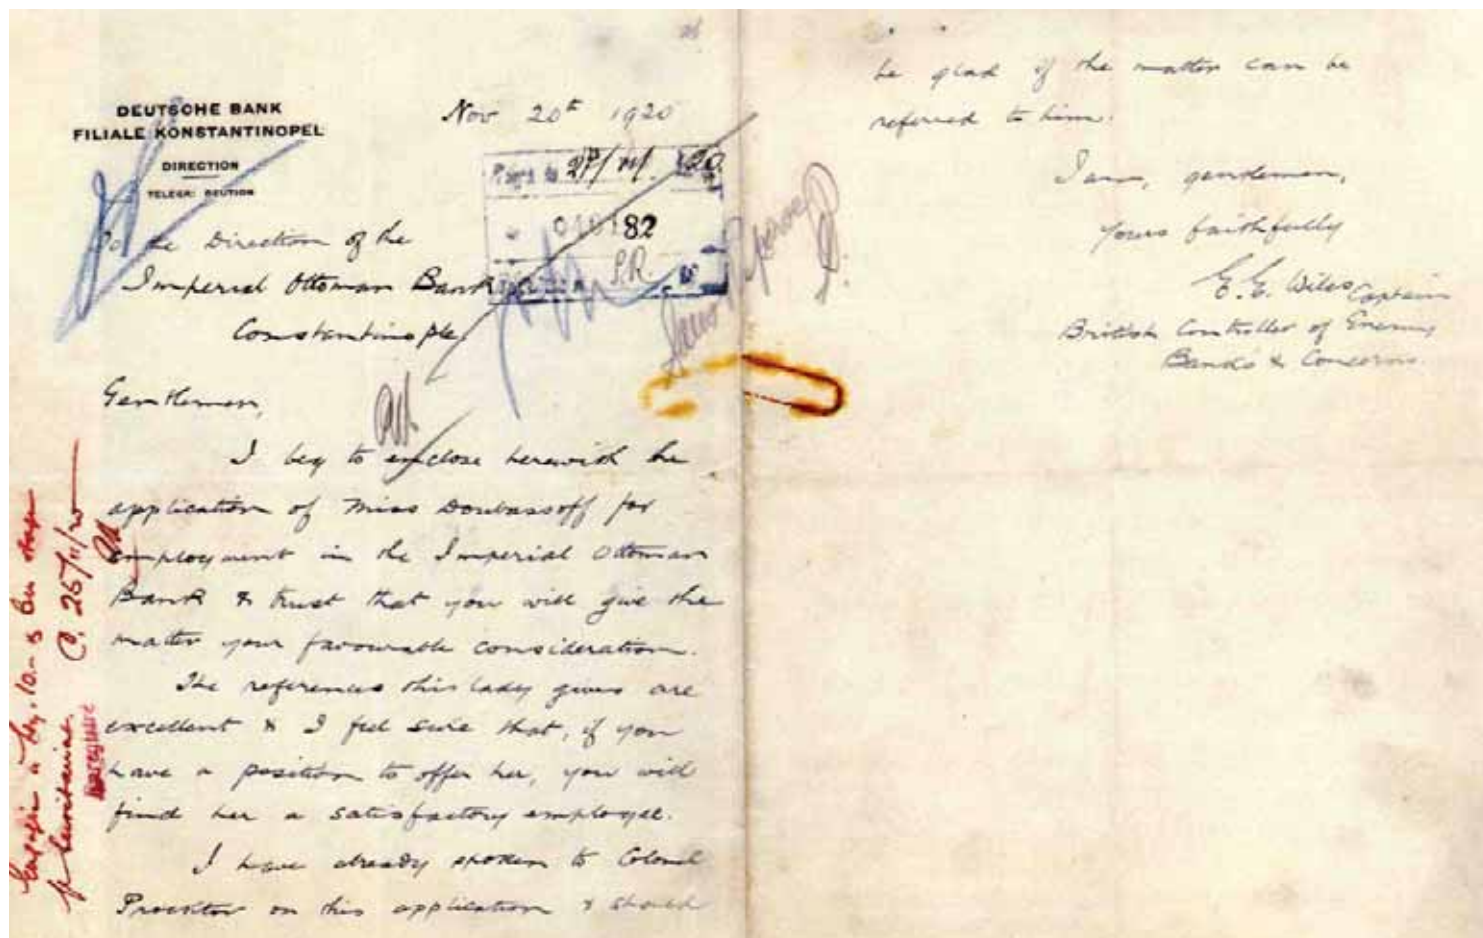 DEUTSCHE BANK
FILIALE KONSTANTINOPEL
DIRECTION
TELEGR: DEUTION
Nov 20th 1920
82
P.R.
To the Direction of the
Imperial Ottoman Bank
Constantinople
Gentlemen,
I beg to enclose herewith the
application of Miss Doubassoff for
employment in the Imperial Ottoman
Bank & trust that you will give the
matter your favourable consideration.
The references this lady gives are
excellent & I feel sure that, if you
have a position to offer her, you will
find her a satisfactory employee.
I have already spoken to Colonel
on this application & should
be glad if the matter can be
referred to him.
I am, gentlemen,
Yours faithfully
E. E. Wiles Captain
British Controller of Enemy
Banks & Concerns.